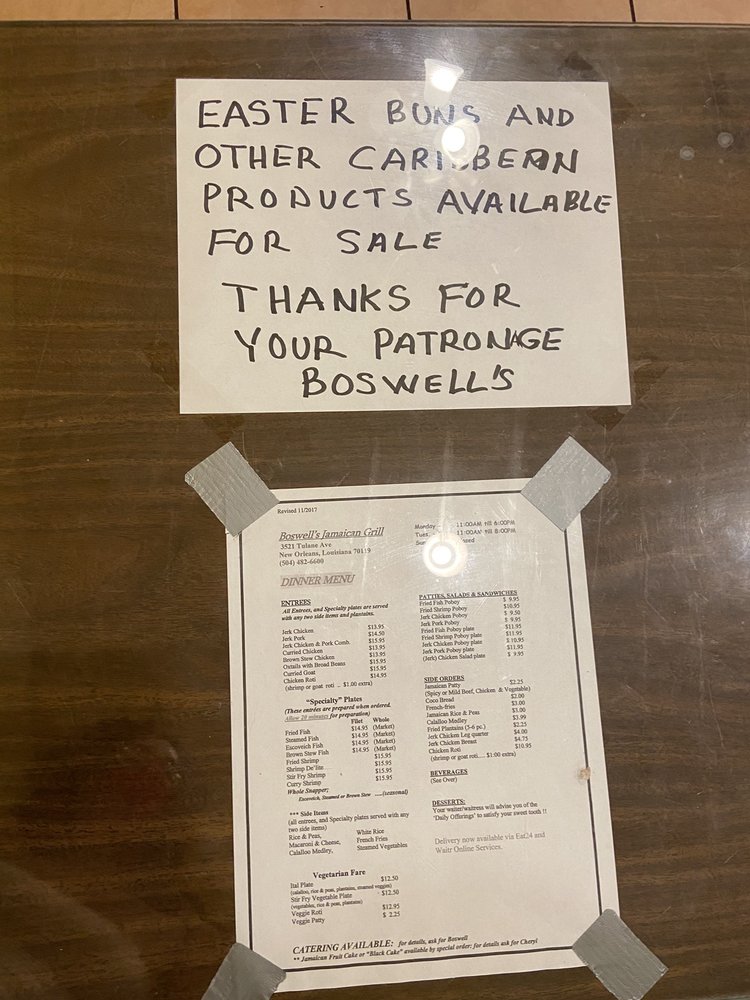 EASTER BUNS AND
OTHER CARIBBEAN
PRODUCTS AVAILABLE
FOR SALE
THANKS FOR
YOUR PATRONAGE
BOSWELL'S
Revised 11/2017
Boswell's Jamaican Grill
3521 Tulane Ave
New Orleans, Louisiana 70119
(504) 482-6600
Monday 11:00AM till 6:00PM
Tues. 11:00AM till 8:00PM
DINNER MENU
ENTREES
All Entrees, and Specialty plates are served
with any two side items and plantains.
Jerk Chicken $13.95
Jerk Pork $14.50
Jerk Chicken & Pork Comb. $15.95
Curried Chicken $13.95
Brown Stew Chicken $13.95
Oxtails with Broad Beans $15.95
Curried Goat $15.95
Chicken Roti $14.95
(shrimp or goat roti .. $1.00 extra)
"Specialty" Plates
(These entrees are prepared when ordered.
Allow 20 minutes for preparation)
Fillet Whole
Fried Fish $14.95 (Market)
Steamed Fish $14.95 (Market)
Escoveich Fish $14.95 (Market)
Brown Stew Fish $14.95 (Market)
Fried Shrimp $15.95
Shrimp De'lite $15.95
Stir Fry Shrimp $15.95
Curry Shrimp $15.95
Whole Snapper;
Escoveich, Steamed or Brown Stew ....(seasonal)
*** Side Items
(all entrees, and Specialty plates served with any
two side items)
Rice & Peas, White Rice
Macaroni & Cheese, French Fries
Calalloo Medley, Steamed Vegetables
Vegetarian Fare
Ital Plate $12.50
(calalloo, rice & peas, plantains, steamed veggies)
Stir Fry Vegetable Plate $12.50
(vegetables, rice & peas, plantains)
Veggie Roti $12.95
Veggie Patty $ 2.25
PATTIES, SALADS & SANDWICHES
Fried Fish Poboy $ 9.95
Fried Shrimp Poboy $10.95
Jerk Chicken Poboy $ 9.50
Jerk Pork Poboy $ 9.95
Fried Fish Poboy plate $11.95
Fried Shrimp Poboy plate $11.95
Jerk Chicken Poboy plate $10.95
Jerk Pork Poboy plate $11.95
(Jerk) Chicken Salad plate $ 9.95
SIDE ORDERS
Jamaican Patty $2.25
(Spicy or Mild Beef, Chicken & Vegetable)
Coco Bread $2.00
French-fries $3.00
Jamaican Rice & Peas $3.00
Calalloo Medley $3.99
Fried Plantains (5-6 pc.) $2.25
Jerk Chicken Leg quarter $4.00
Jerk Chicken Breast $4.75
Chicken Roti $10.95
(shrimp or goat roti.... $1:00 extra)
BEVERAGES
(See Over)
DESSERTS:
Your waiter/waitress will advise you of the
'Daily Offerings' to satisfy your sweet tooth !!
Delivery now available via Eat24 and
Waitr Online Services.
CATERING AVAILABLE: for details, ask for Boswell
** Jamaican Fruit Cake or "Black Cake" available by special order: for details ask for Cheryl